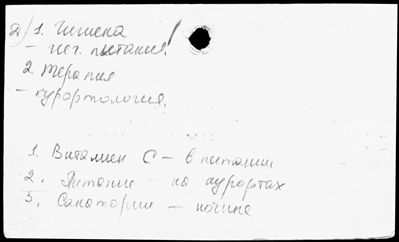 Д/ 1. Гигиена
– гиг. питания!
2. Терапия
– курортология.
1. Витамин C – в питании
2. Питание – на курортах
3. Санатории –